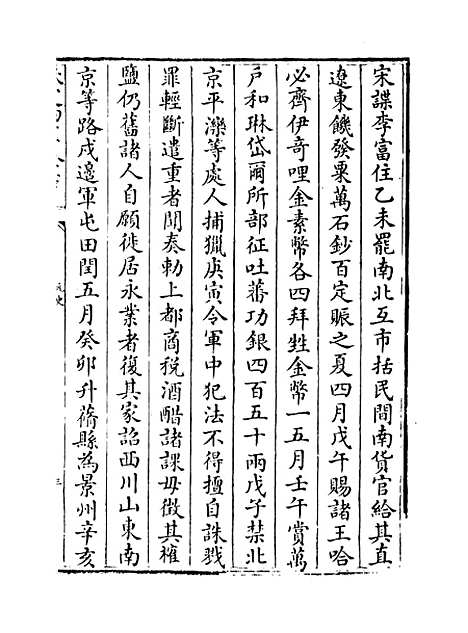 宋諜李富住乙未罷南北互市括民間南貨官給其直
遼東饑發粟萬石鈔百定賑之夏四月戊午賜諸王哈
必齊伊奇哩金素幣各四拜甡金幣一五月壬午賞萬
戶和琳岱爾所部征吐蕃功銀四百五十兩戊子禁北
京平灤等處人捕獵庚寅令軍中犯法不得擅自誅戮
罪輕斷遣重者聞奏勅上都商稅酒醋諸課毋徵其榷
鹽仍舊諸人自願徙居永業者復其家詔西川山東南
京等路戍邊軍屯田閏五月癸卯升蓨縣為景州辛亥
元史
三